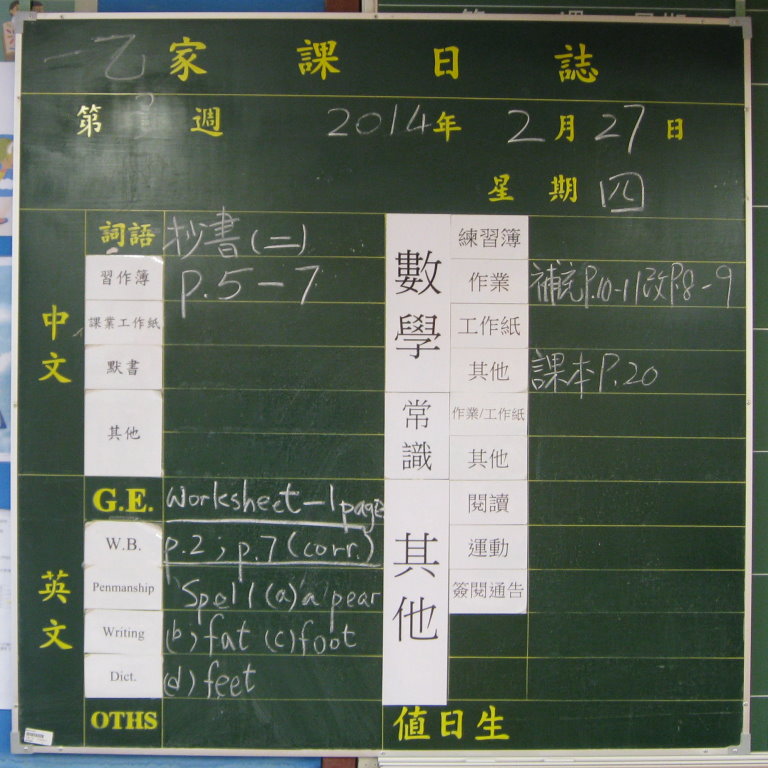 一乙 家課日誌
第 週 2014年 2月27日
星期四
中文
詞語 抄書(二)
習作簿 p.5-7
課業工作紙
默書
其他
英文
G.E. worksheet-1page
W.B. p.2; p.7(corr.)
Penmanship Spell (a) a pear
Writing (b) fat (c) foot
Dict. (d) feet
OTHS
數學
練習簿
作業 補充P.10-11改P.8-9
工作紙
其他 課本P.20
常識
作業/工作紙
其他
其他
閱讀
運動
簽閱通告
值日生